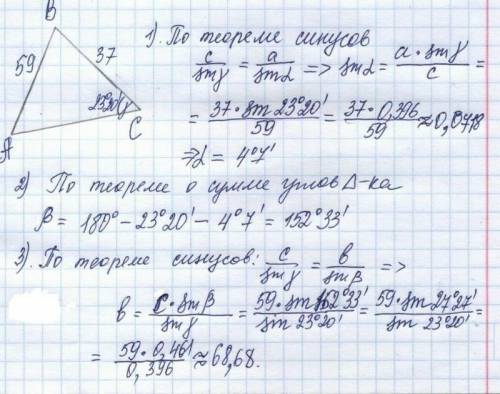 B
59
37
23°20'
γ
A
C
1) По теореме синусов
c/sinγ = a/sinα => sinα = a·sinγ/c =
= 37·sin 23°20'/59 = 37·0,396/59 ≈ 0,0718
=> α = 4°7'
2) По теореме о сумме углов Δ-ка
β = 180° − 23°20' − 4°7' = 152°33'
3). По теореме синусов: c/sinγ = b/sinβ =>
b = c·sinβ/sinγ = 59·sin 152°33'/sin 23°20' = 59·sin 27°27'/sin 23°20' =
= 59·0,461/0,396 ≈ 68,68.